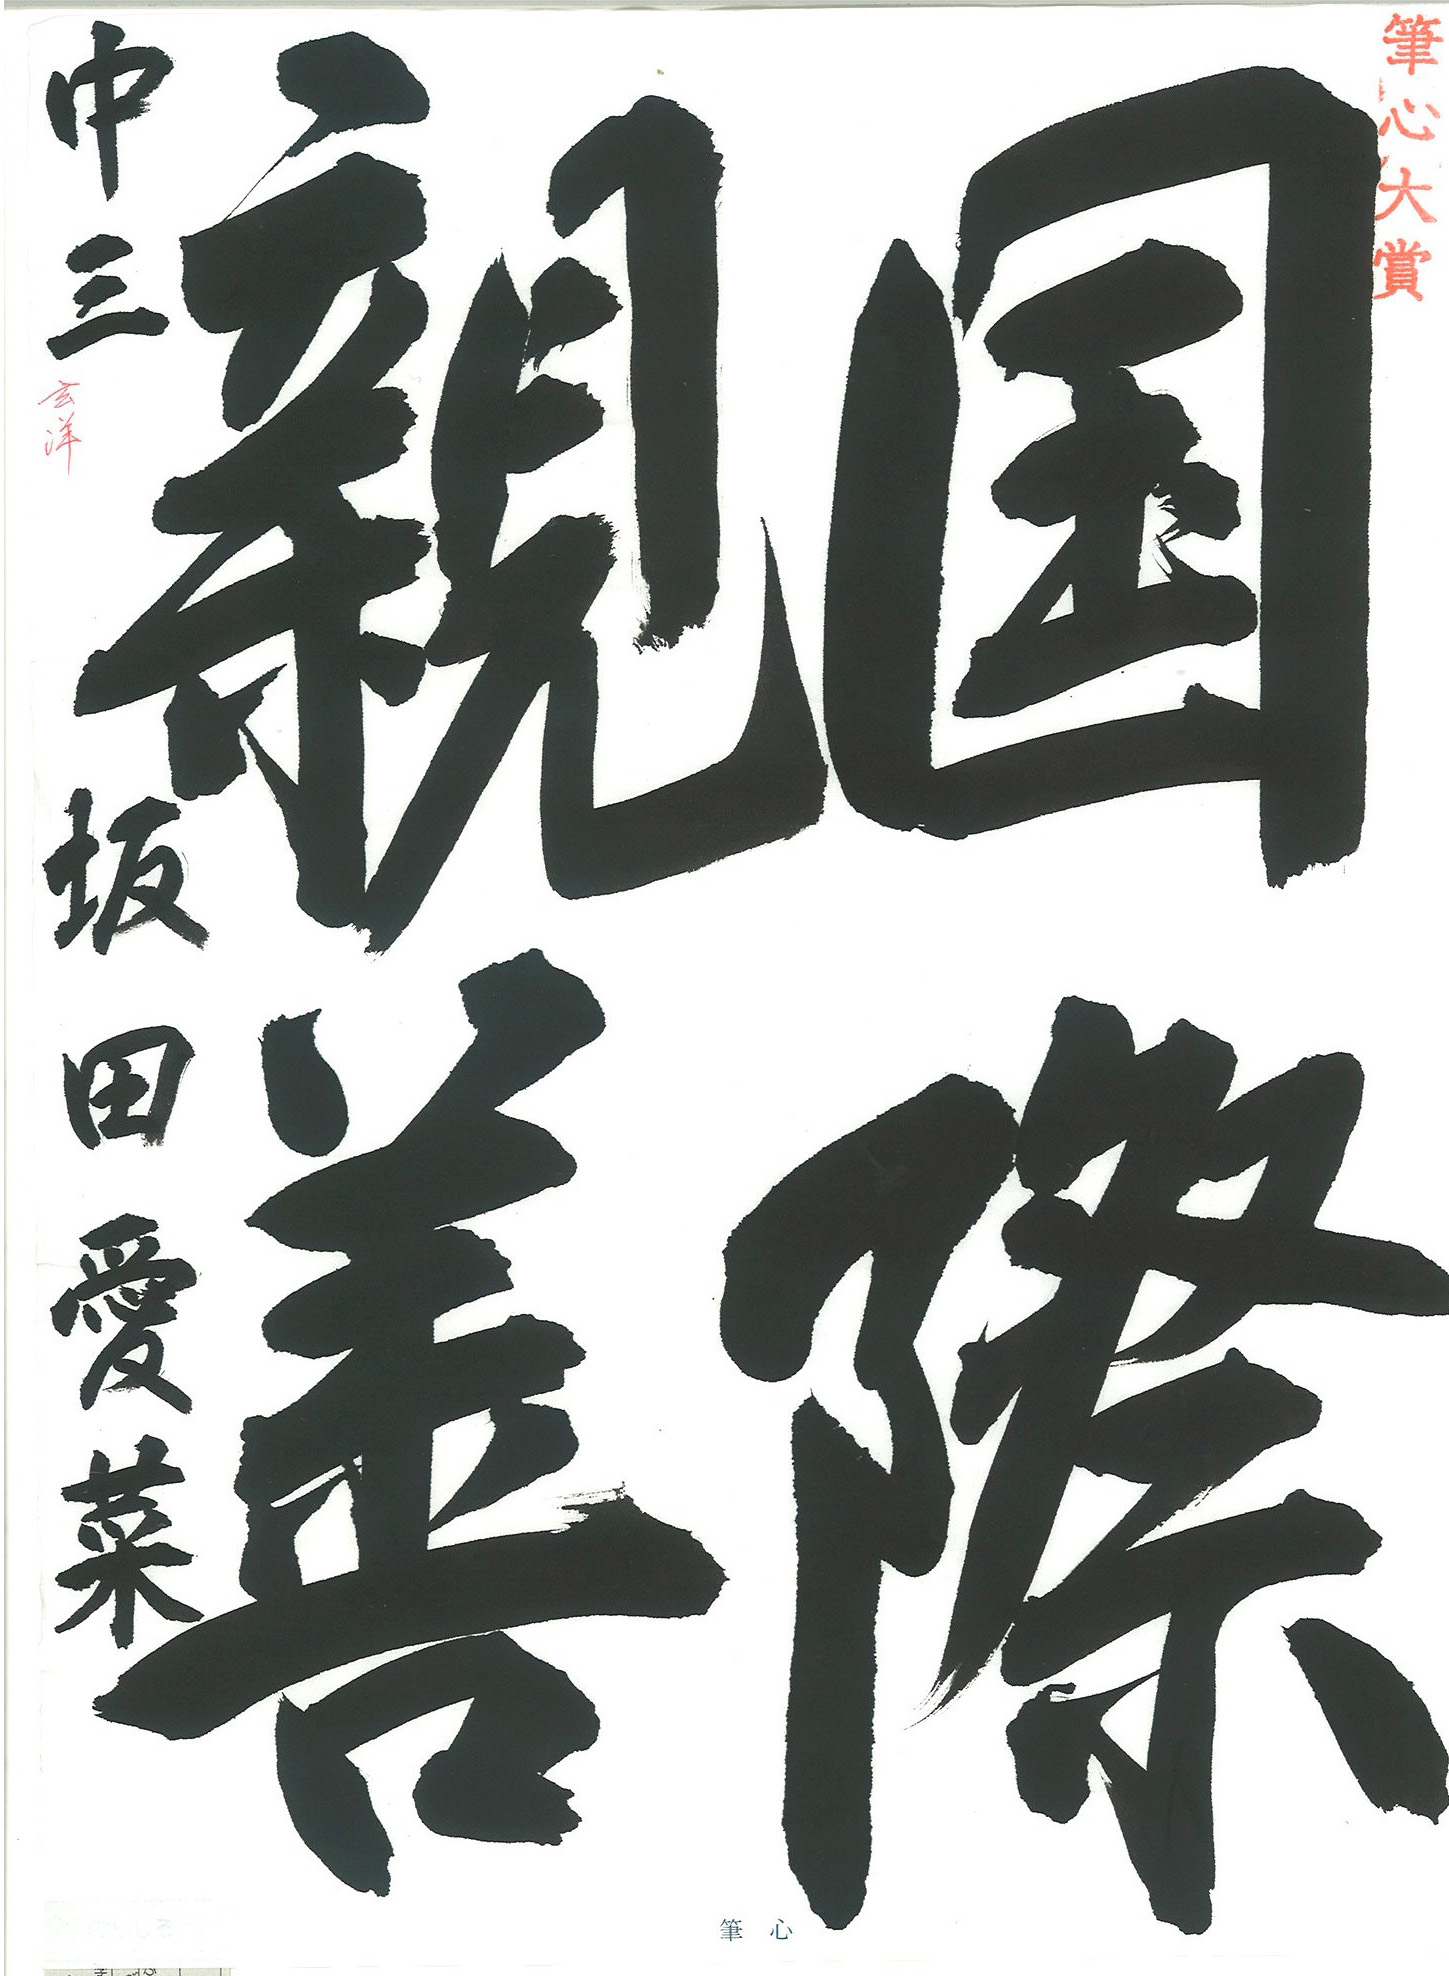 筆心大賞
国際
親善
中三 坂田愛菜
玄洋
筆心